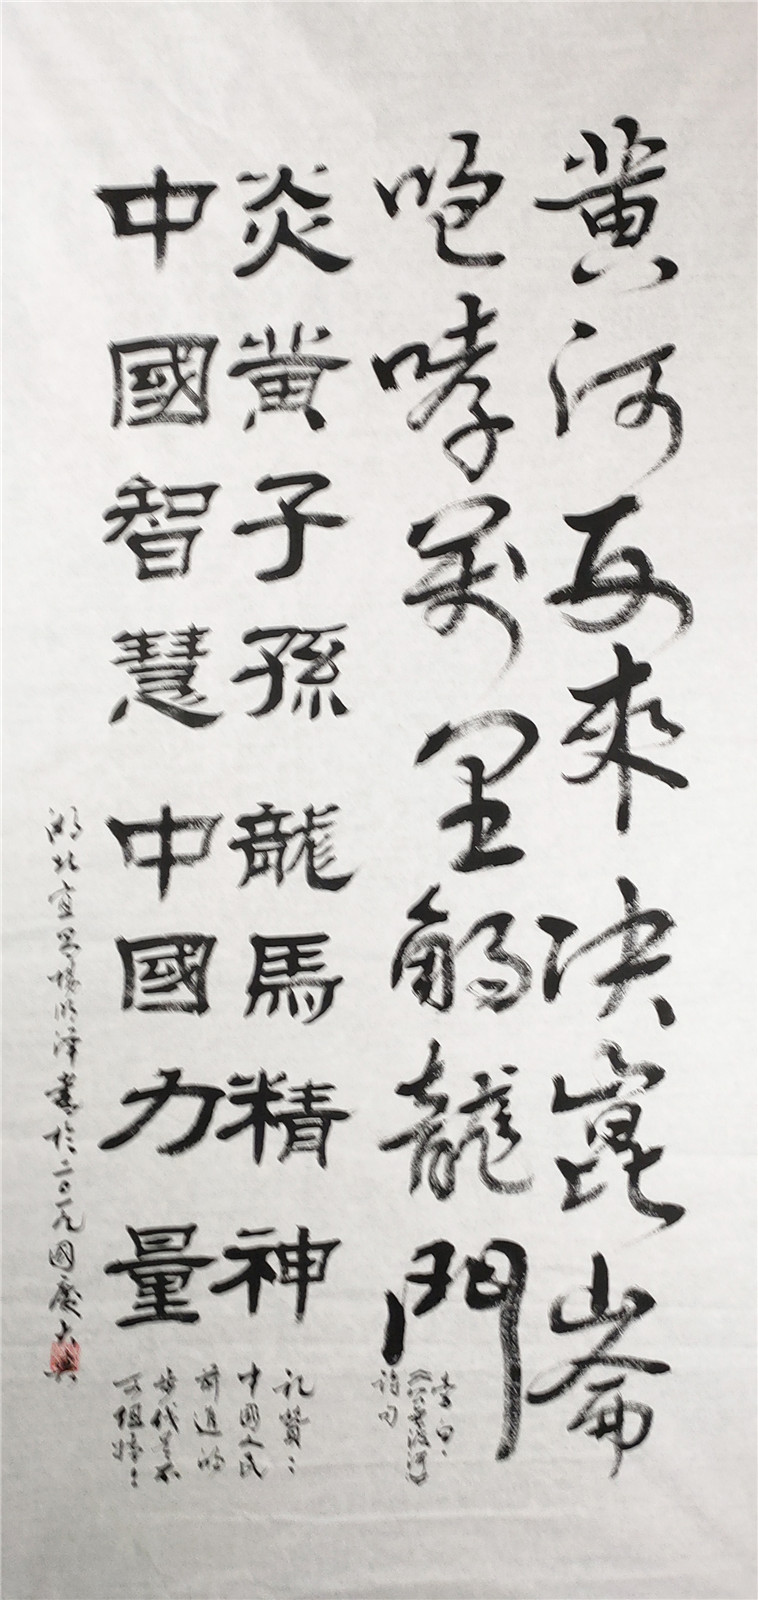 黄河西來決崑崙
咆哮萬里觸龍門
李白：
《公無渡河》
詩句
炎黄子孫 龍馬精神
中國智慧 中國力量
記贊：
中國人民
前進的
步伐是不
可阻擋：
湖北宜昌楊明澤書於二〇一九國慶大典